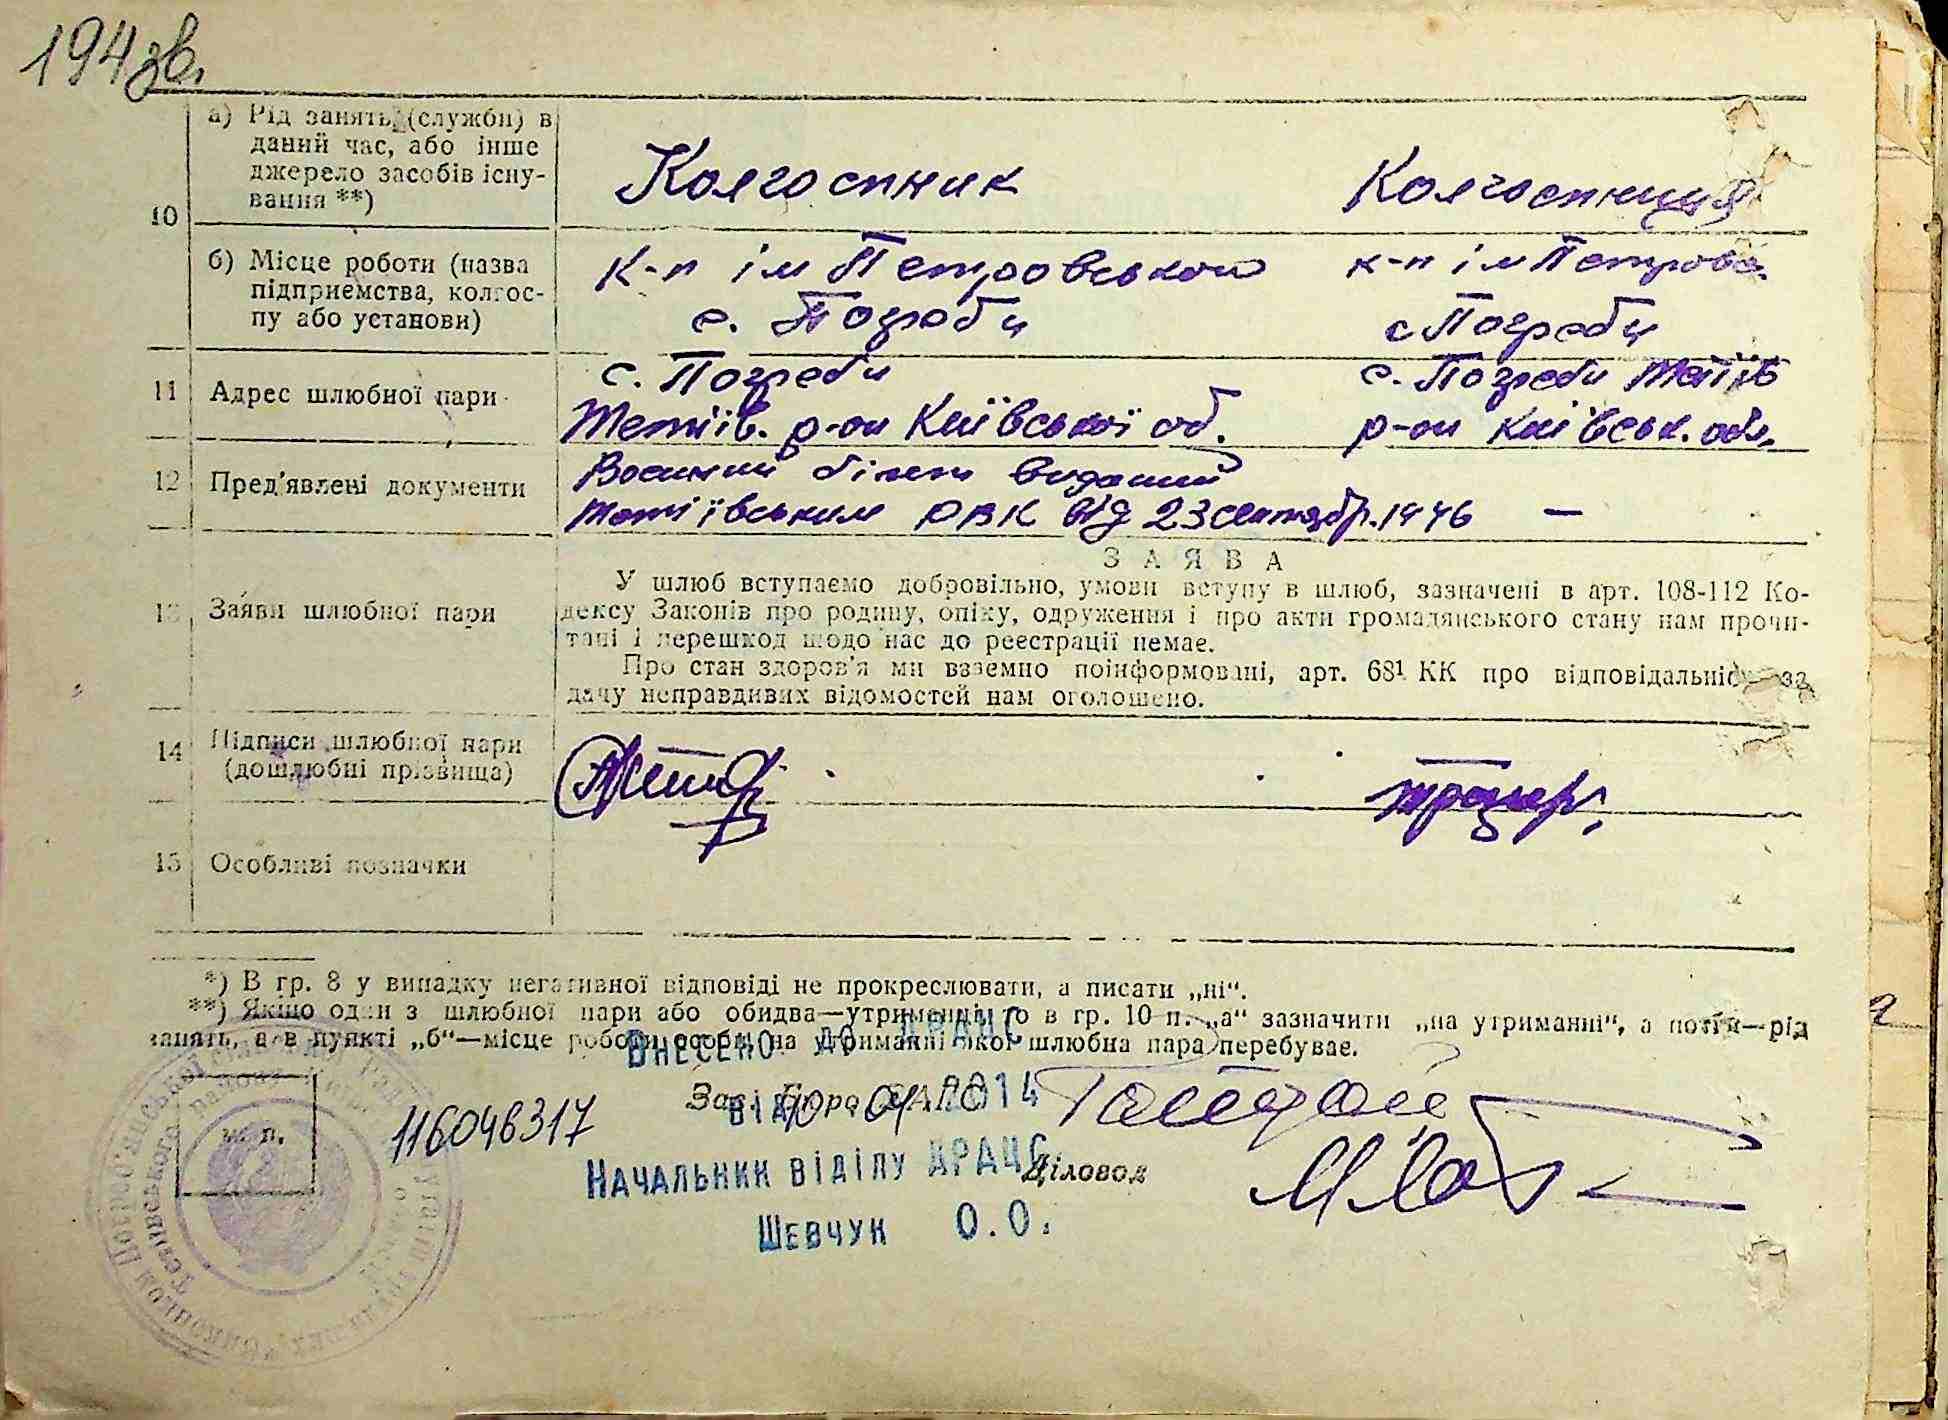 194зв.
а) Рід занять (служби) в
даний час, або інше
джерело засобів існу-
вання **)
10
Колгоспник
Колгоспниця
б) Місце роботи (назва
підприємства, колгос-
пу або установи)
к-п ім Петровського
с. Погреби
к-п ім Петровс.
с Погреби
11 Адрес шлюбної пари
с. Погреби
Тетіїв. р-он Київської об.
с. Погреби Тетіїв
р-он Київськ. обл.
12 Пред'явлені документи
Воєнний білет виданий
Тетіївським РВК від 23 сентябр. 1946 —
13 Заяви шлюбної пари
ЗАЯВА
У шлюб вступаємо добровільно, умови вступу в шлюб, зазначені в арт. 108-112 Ко-
дексу Законів про родину, опіку, одруження і про акти громадянського стану нам прочи-
тані і перешкод щодо нас до реестрації немае.
Про стан здоров'я ми взаємно поінформовані, арт. 68¹ КК про відповідальність за
дачу неправдивих відомостей нам оголошено.
14 Підписи шлюбної пари
(дошлюбні прізвища)
15 Особливі позначки
*) В гр. 8 у випадку негативної відповіді не прокреслювати, а писати „ні“.
**) Якщо один з шлюбної пари або обидва—утриманці, то в гр. 10 п. „а“ зазначити „на утриманні“, а потім—рід
занять, а в пункті „б“—місце роботи особи, на утриманні якої шлюбна пара перебувае.
Внесено до ДРАЦС
Зав. Бюро ЗАГС
від 10.04.2014
м. п.
116046317
Начальник відділу ДРАЦС
Діловод
Шевчук О.О.